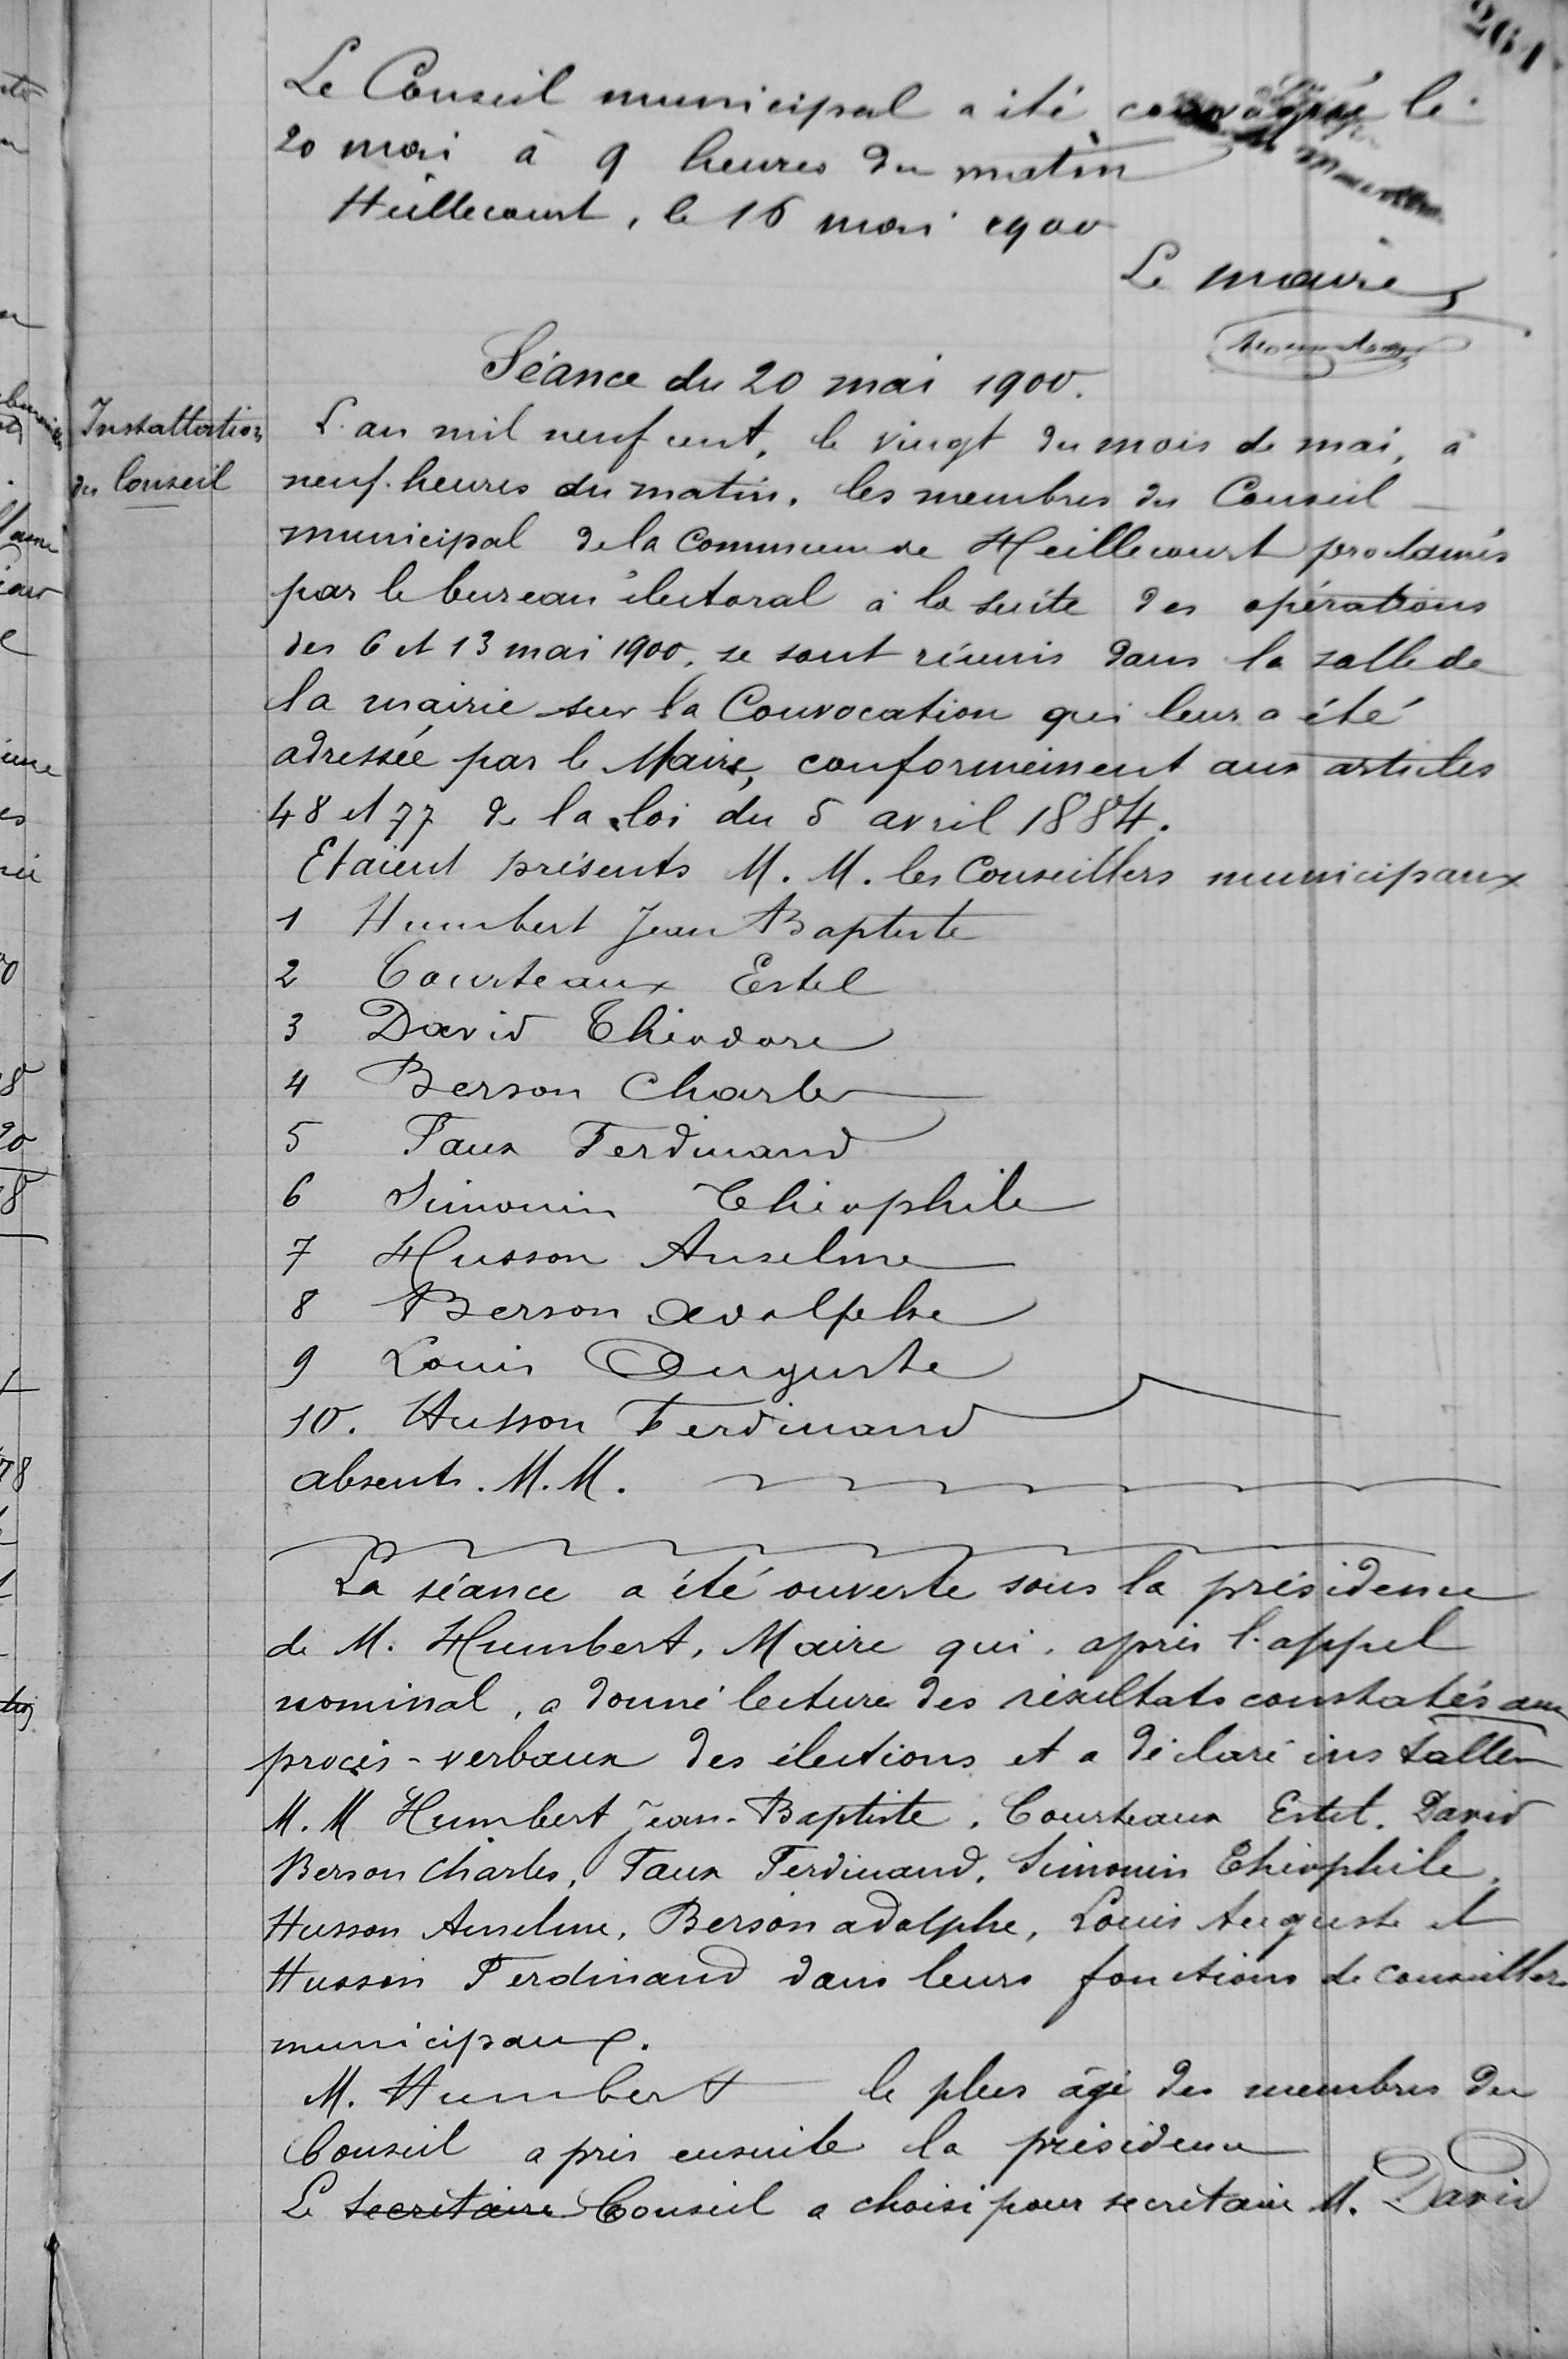 261
Le Conseil municipal a été convoqué le
20 mai à 9 heures du matin
Heillecourt, le 16 mai 1900
Le maire
Séance du 20 mai 1900.
Installation
du Conseil
L'an mil neuf cent, le vingt du mois de mai, à
neuf heures du matin, les membres du Conseil
municipal de la Commune de Heillecourt proclamés
par le bureau électoral à la suite des opérations
des 6 et 13 mai 1900, se sont réunis dans la salle de
la mairie sur la Convocation qui leur a été
adressée par le Maire, conformément aux articles
48 et 77 de la loi du 5 avril 1884.
Etaient présents M. M. les Conseillers municipaux
1 Humbert Jean Baptiste
2 Courteaux Estel
3 David Théodore
4 Berson Charles
5 Faux Ferdinand
6 Simonin Théophile
7 Husson Anselme
8 Berson Adolphe
9 Louis Auguste
10. Husson Ferdinand
absents. M. M.
La séance a été ouverte sous la présidence
de M. Humbert, Maire qui, après l'appel
nominal, a donné lecture des résultats constatés aux
procès-verbaux des élections et a déclaré installer
M. M Humbert Jean-Baptiste, Courteaux Estel, David
Berson Charles, Faux Ferdinand, Simonin Théophile,
Husson Anselme, Berson adolphe, Louis Auguste et
Husson Ferdinand dans leurs fonctions de conseillers
municipaux.
M. Humbert le plus âgé des membres du
Conseil a pris ensuite la présidence
Le secrétaire Conseil a choisi pour secrétaire M. David